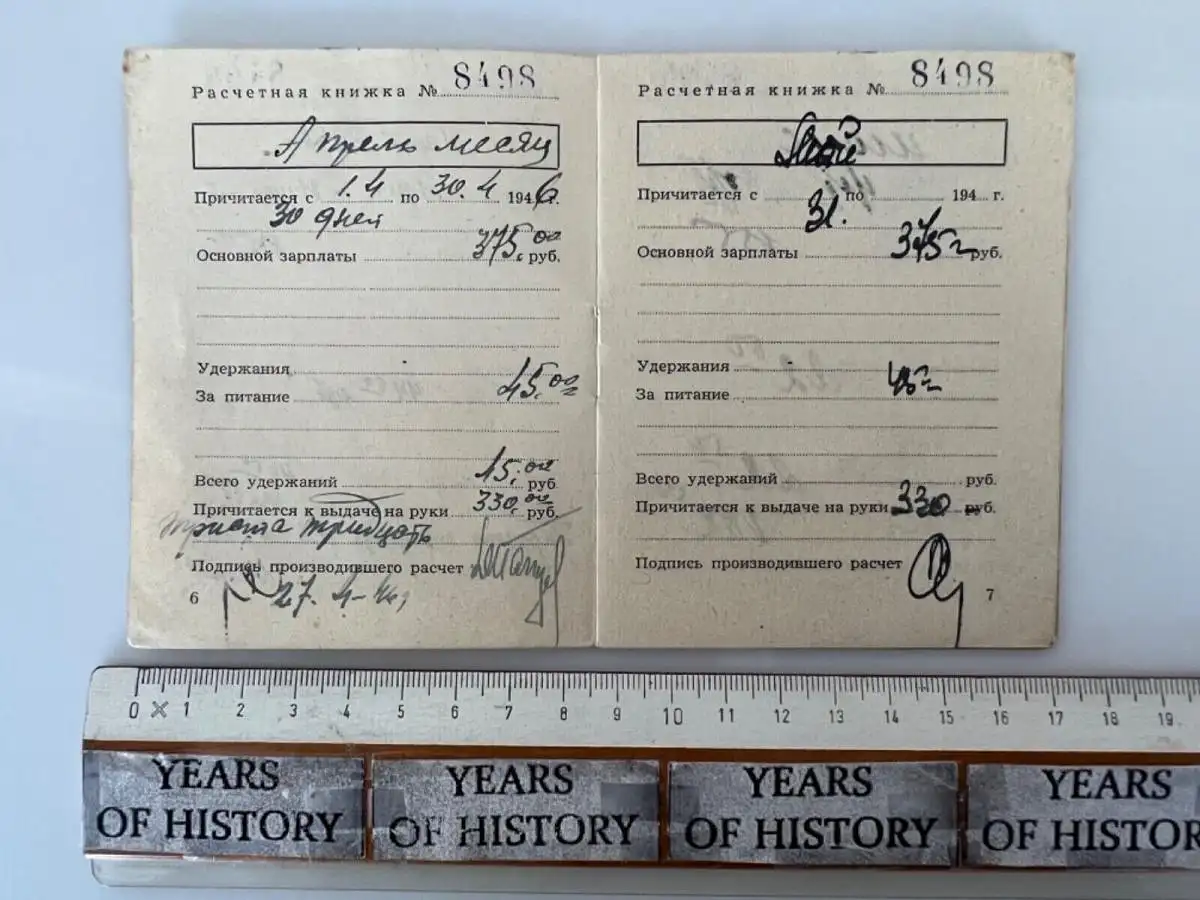 Расчетная книжка № 8498
Апрель месяц
Причитается с 1.4 по 30.4 1946 г.
30 дней
Основной зарплаты 375,00 руб.
Удержания
За питание 45,00
Всего удержаний 45,00 руб
Причитается к выдаче на руки 330,00 руб.
триста тридцать
Подпись производившего расчет
27. 4-46,
6
Расчетная книжка № 8498
Май
Причитается с по 194 г.
31.
Основной зарплаты 375 руб.
Удержания
За питание 45
Всего удержаний руб.
Причитается к выдаче на руки 330 руб.
Подпись производившего расчет
7
0 1 2 3 4 5 6 7 8 9 10 11 12 13 14 15 16 17 18 19
YEARS OF HISTORY
YEARS OF HISTORY
YEARS OF HISTORY
YEARS OF HISTOR